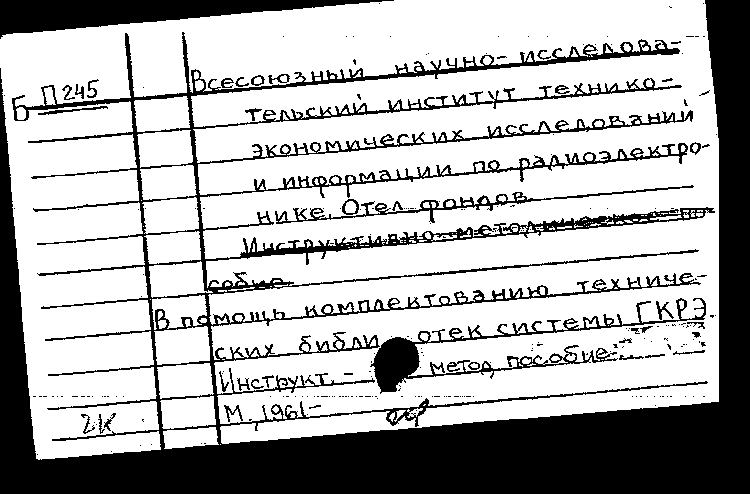 Б П 245
Всесоюзный научно-исследова-
тельский институт технико-
экономических исследований
и информации по радиоэлектро-
нике. Отел фондов.
Инструктивно-методическое по-
собие
В помощь комплектованию техниче-
ских библиотек системы ГКРЭ.
Инструкт.- метод. пособие
М., 1961-
2К